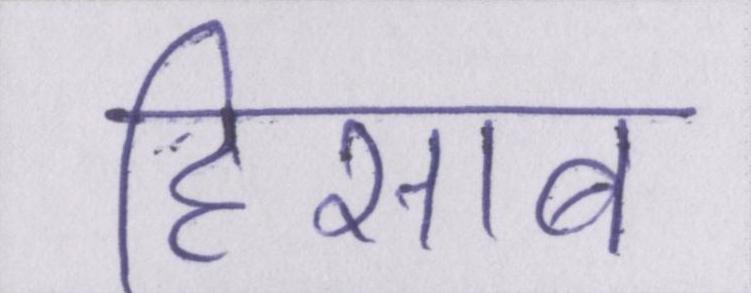 हिसाब